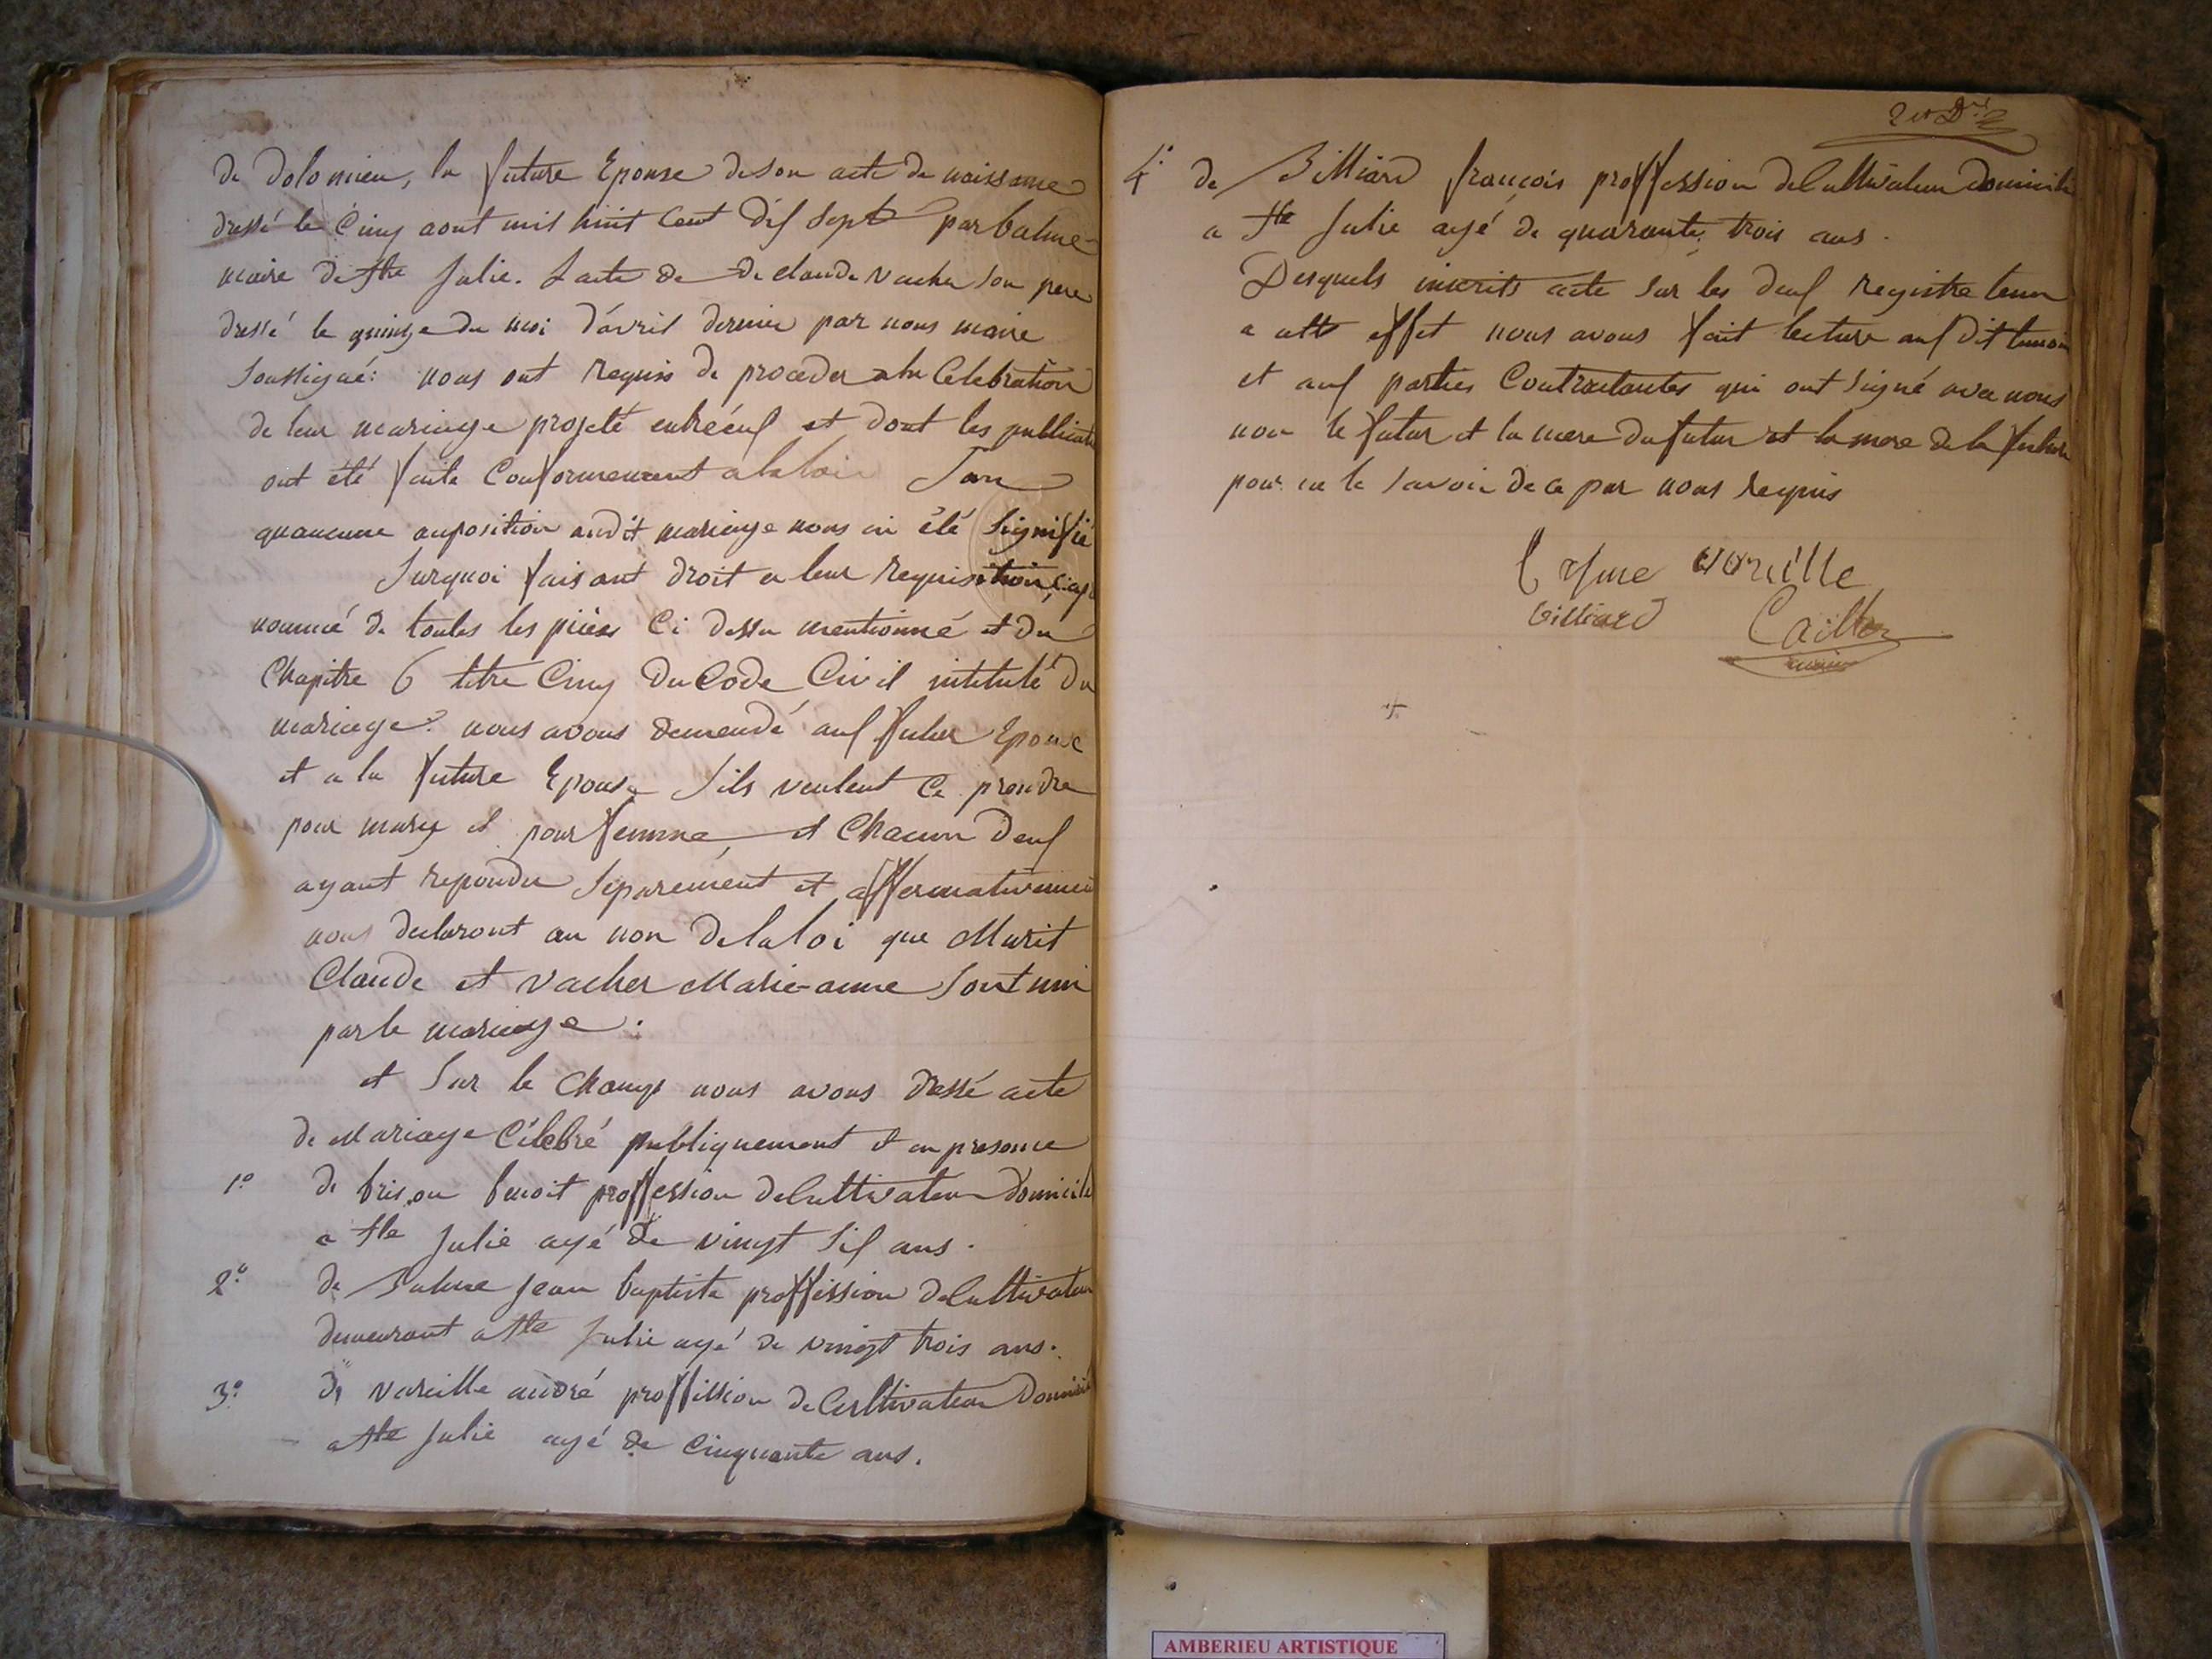 de Dolomieu, la future Epouse de son acte de naissance
dressé le Cinq aout mil huit Cent dif Sept par balme
maire de Ste Julie. L'acte de de claude vacher son pere
dressé le quinze du moi d'avril dernier par nous maire
Soussigné: nous ont requis de proceder a la Celebration
de leur mariage projeté entre euf et dont les publicat
ont été faite Conformement a la loi San
quaucune auposition audit mariage nous ai été Signifié
Surquoi faisant droit a leur requisition,
nommé de toutes les pièces Ci dessu mentionné et du
Chapitre 6 titre Cinq Du Code Civil intitulé Du
mariage. nous avons demendé auf futur Epouse
et a la future Epouse Sils veulent Ce prendre
pour mary et pour femme, et Chacun deuf
ayant repondu Separément et affermativement
nous declaront au non de la loi que Murit
Claude et vacher Marie-anne Sont uni
par le mariage.
et Sur le Champ nous avons dressé acte
de Mariage Célebré publiquement et en presence
1º de brison benoit proffession de Cultivateur domicilé
a Ste Julie agé de vingt Sif ans.
2º de Balme Jean baptiste proffession de Cultivateur
demeurant a Ste Julie agé de vingt trois ans.
3º de vareille andré proffission de Cultivateur Domicilé
a Ste Julie agé de Cinquante ans.
4º de Billiard françois proffession de Cultivateur domicilé
a Ste Julie agé de quarante trois ans.
Desquels inscrits acte Sur les deuf registre tenu
a cett effet nous avons fait lecture auf dit temoin
et auf parties Contractantes qui ont Signé avec nous
non le futur et la mere du futur et la mere de la future
pour ne le Savoir de ce par nous requis
varille
billiard Caillier
maire
AMBERIEU ARTISTIQUE